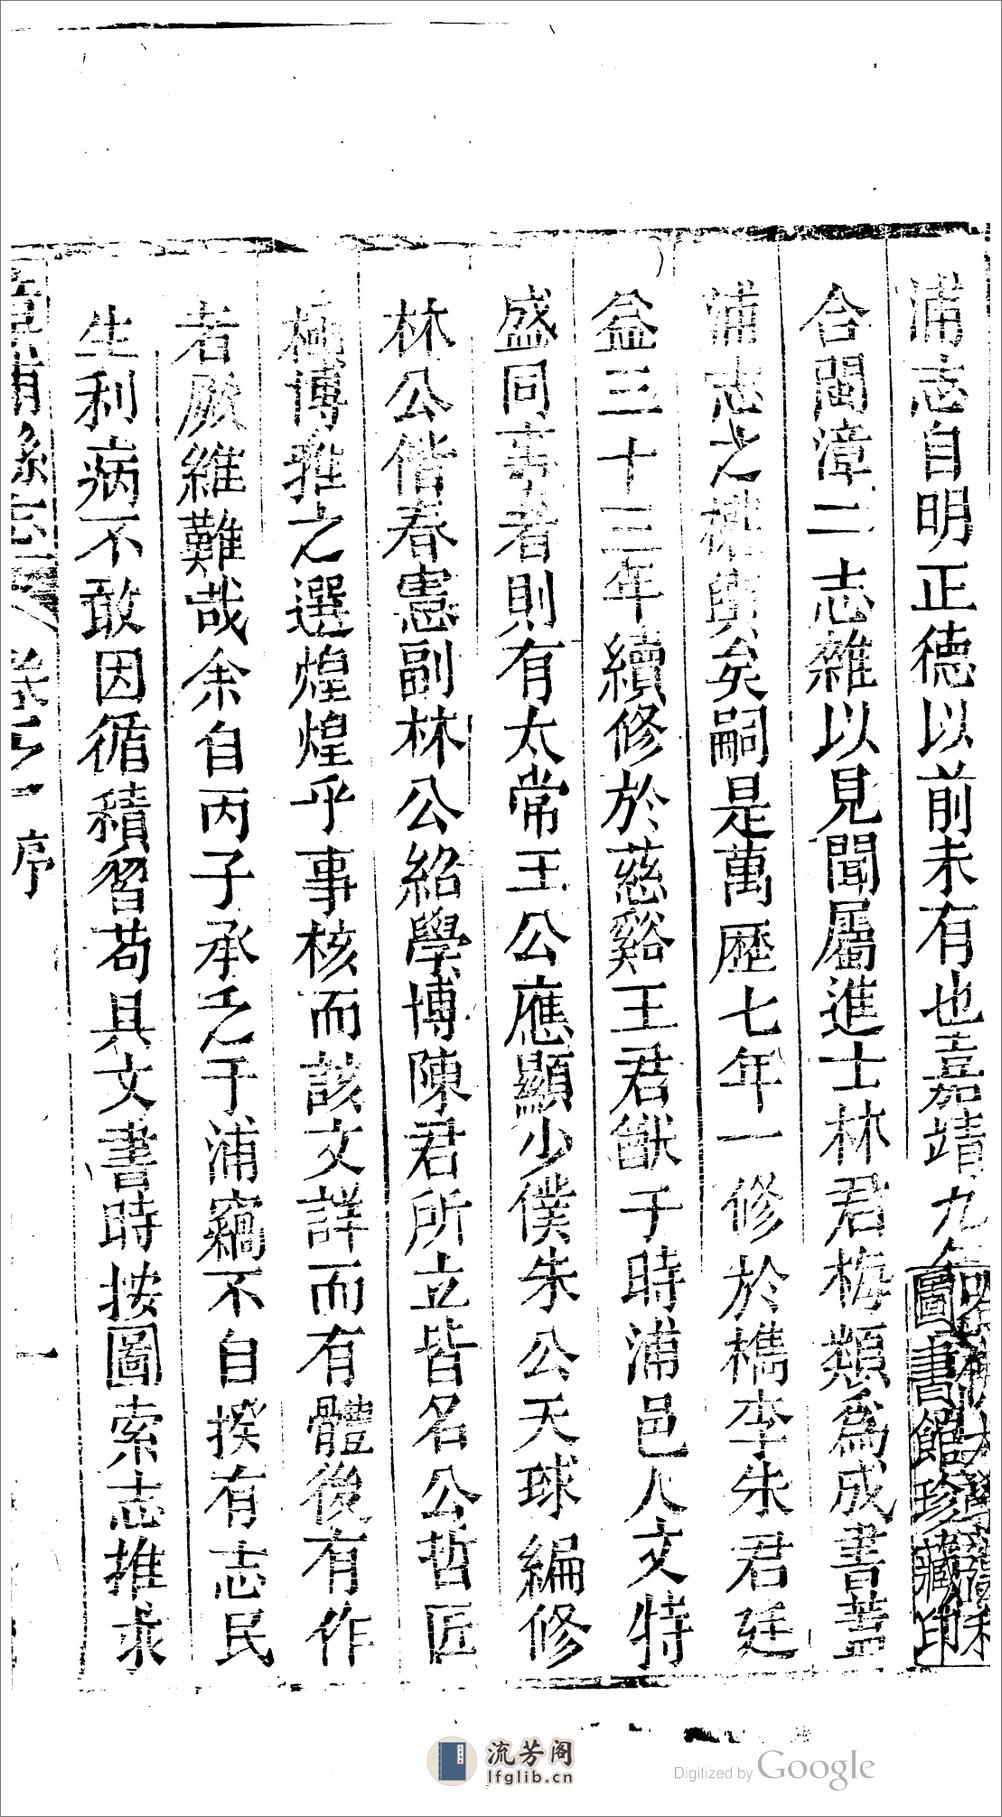 浦志自明正德以前未有也嘉靖九年
合閩漳二志雜以見聞屬進士林君梅類爲成書蓋
浦志之權輿矣嗣是萬歷七年一修於檇李朱君廷
益三十三年續修於慈谿王君猷于時浦邑人文特
盛同事者則有太常王公應顯少僕朱公天球編修
林公偕春憲副林公紹學博陳君所立皆名公哲匠
極博雅之選煌煌乎事核而該文詳而有體後有作
者厥維難哉余自丙子承乏于浦竊不自揆有志民
生利病不敢因循積習苟具文書時按圖索志推求
浦縣志 卷之 序 一
圖書館珍藏印
流芳阁
lfglib.cn
Digitized by Google